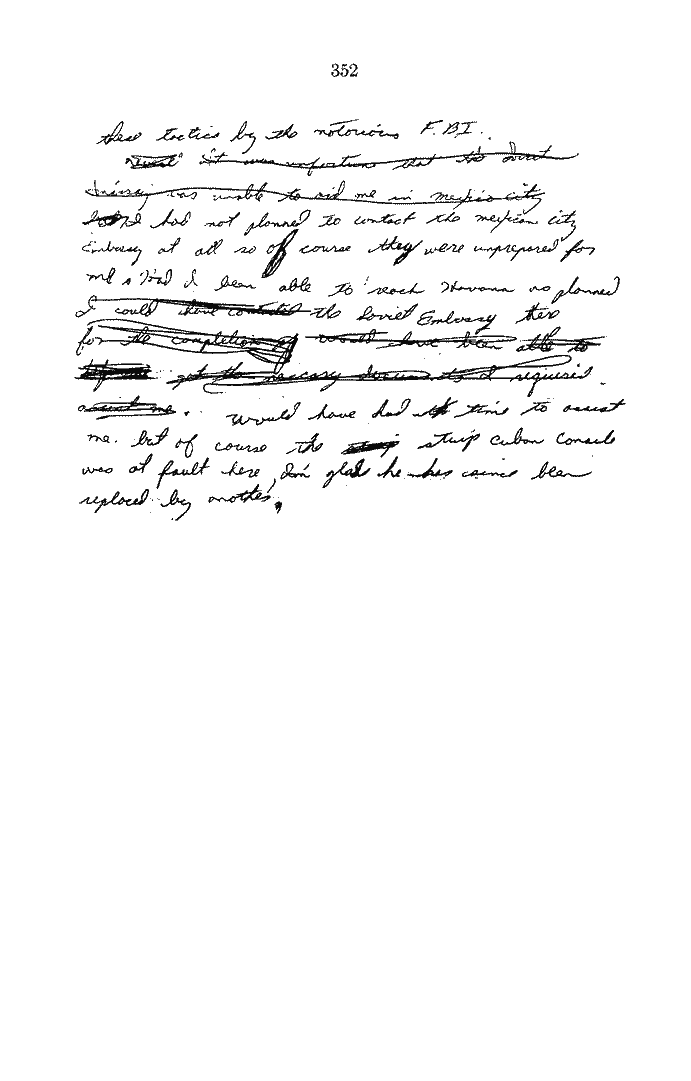 352
these tactics by the notorious F.B.I..
it was unfortune that the Soviet
Embassy was unable to aid me in mexico city
but I had not planned to contact the mexican city
Embassy at all so of course they were unprepared for
me. Had I been able to reach Havana as planned
I could have contacted the Soviet Embassy there
for the completion of would have been able to
get the necessary documents I required
assist me. would have had time to assist
me. but of course the stuip cuban consule
was at fault here, I'm glad he has since been
replaced by another.